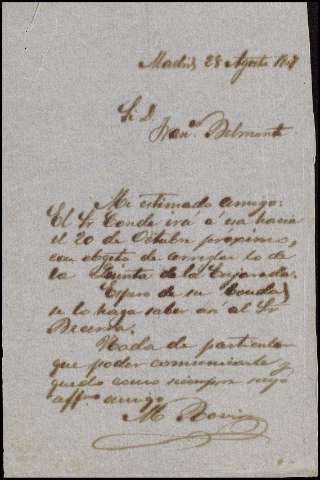 Madrid 28 Agosto
Sr D.
Franco. Belmonte
Mi estimado amigo:
El Sr Conde irá á esa hacia
el 20 de Octubre próximo,
con objeto de arreglar lo de
la Quinta de la Enjarada.
Espero de su bondad
se lo haga saber así al Sr
Becerra.
Nada de particular
que poder comunicarle y
quedo como siempre suyo
affmo amigo
M